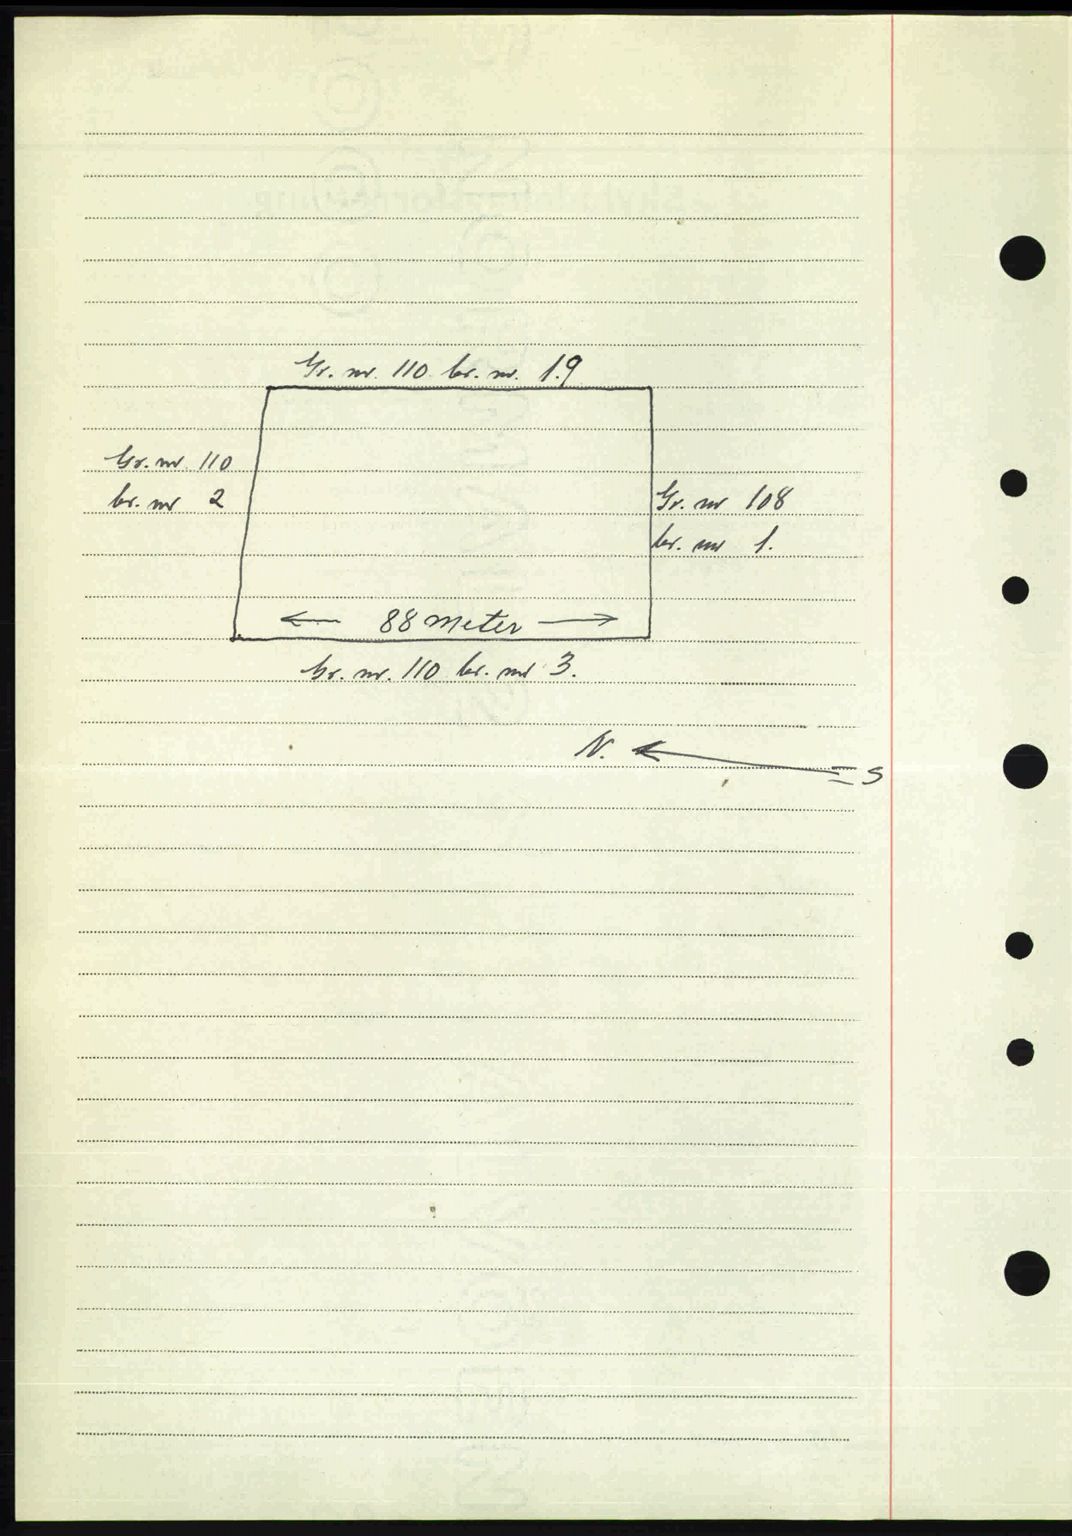 Gr. nr. 110 br. nr. 19
Gr. nr. 110
br. nr 2
Gr. nr 108
br. nr 1.
← 88 meter →
Gr. nr. 110 br. nr 3.
N.
S